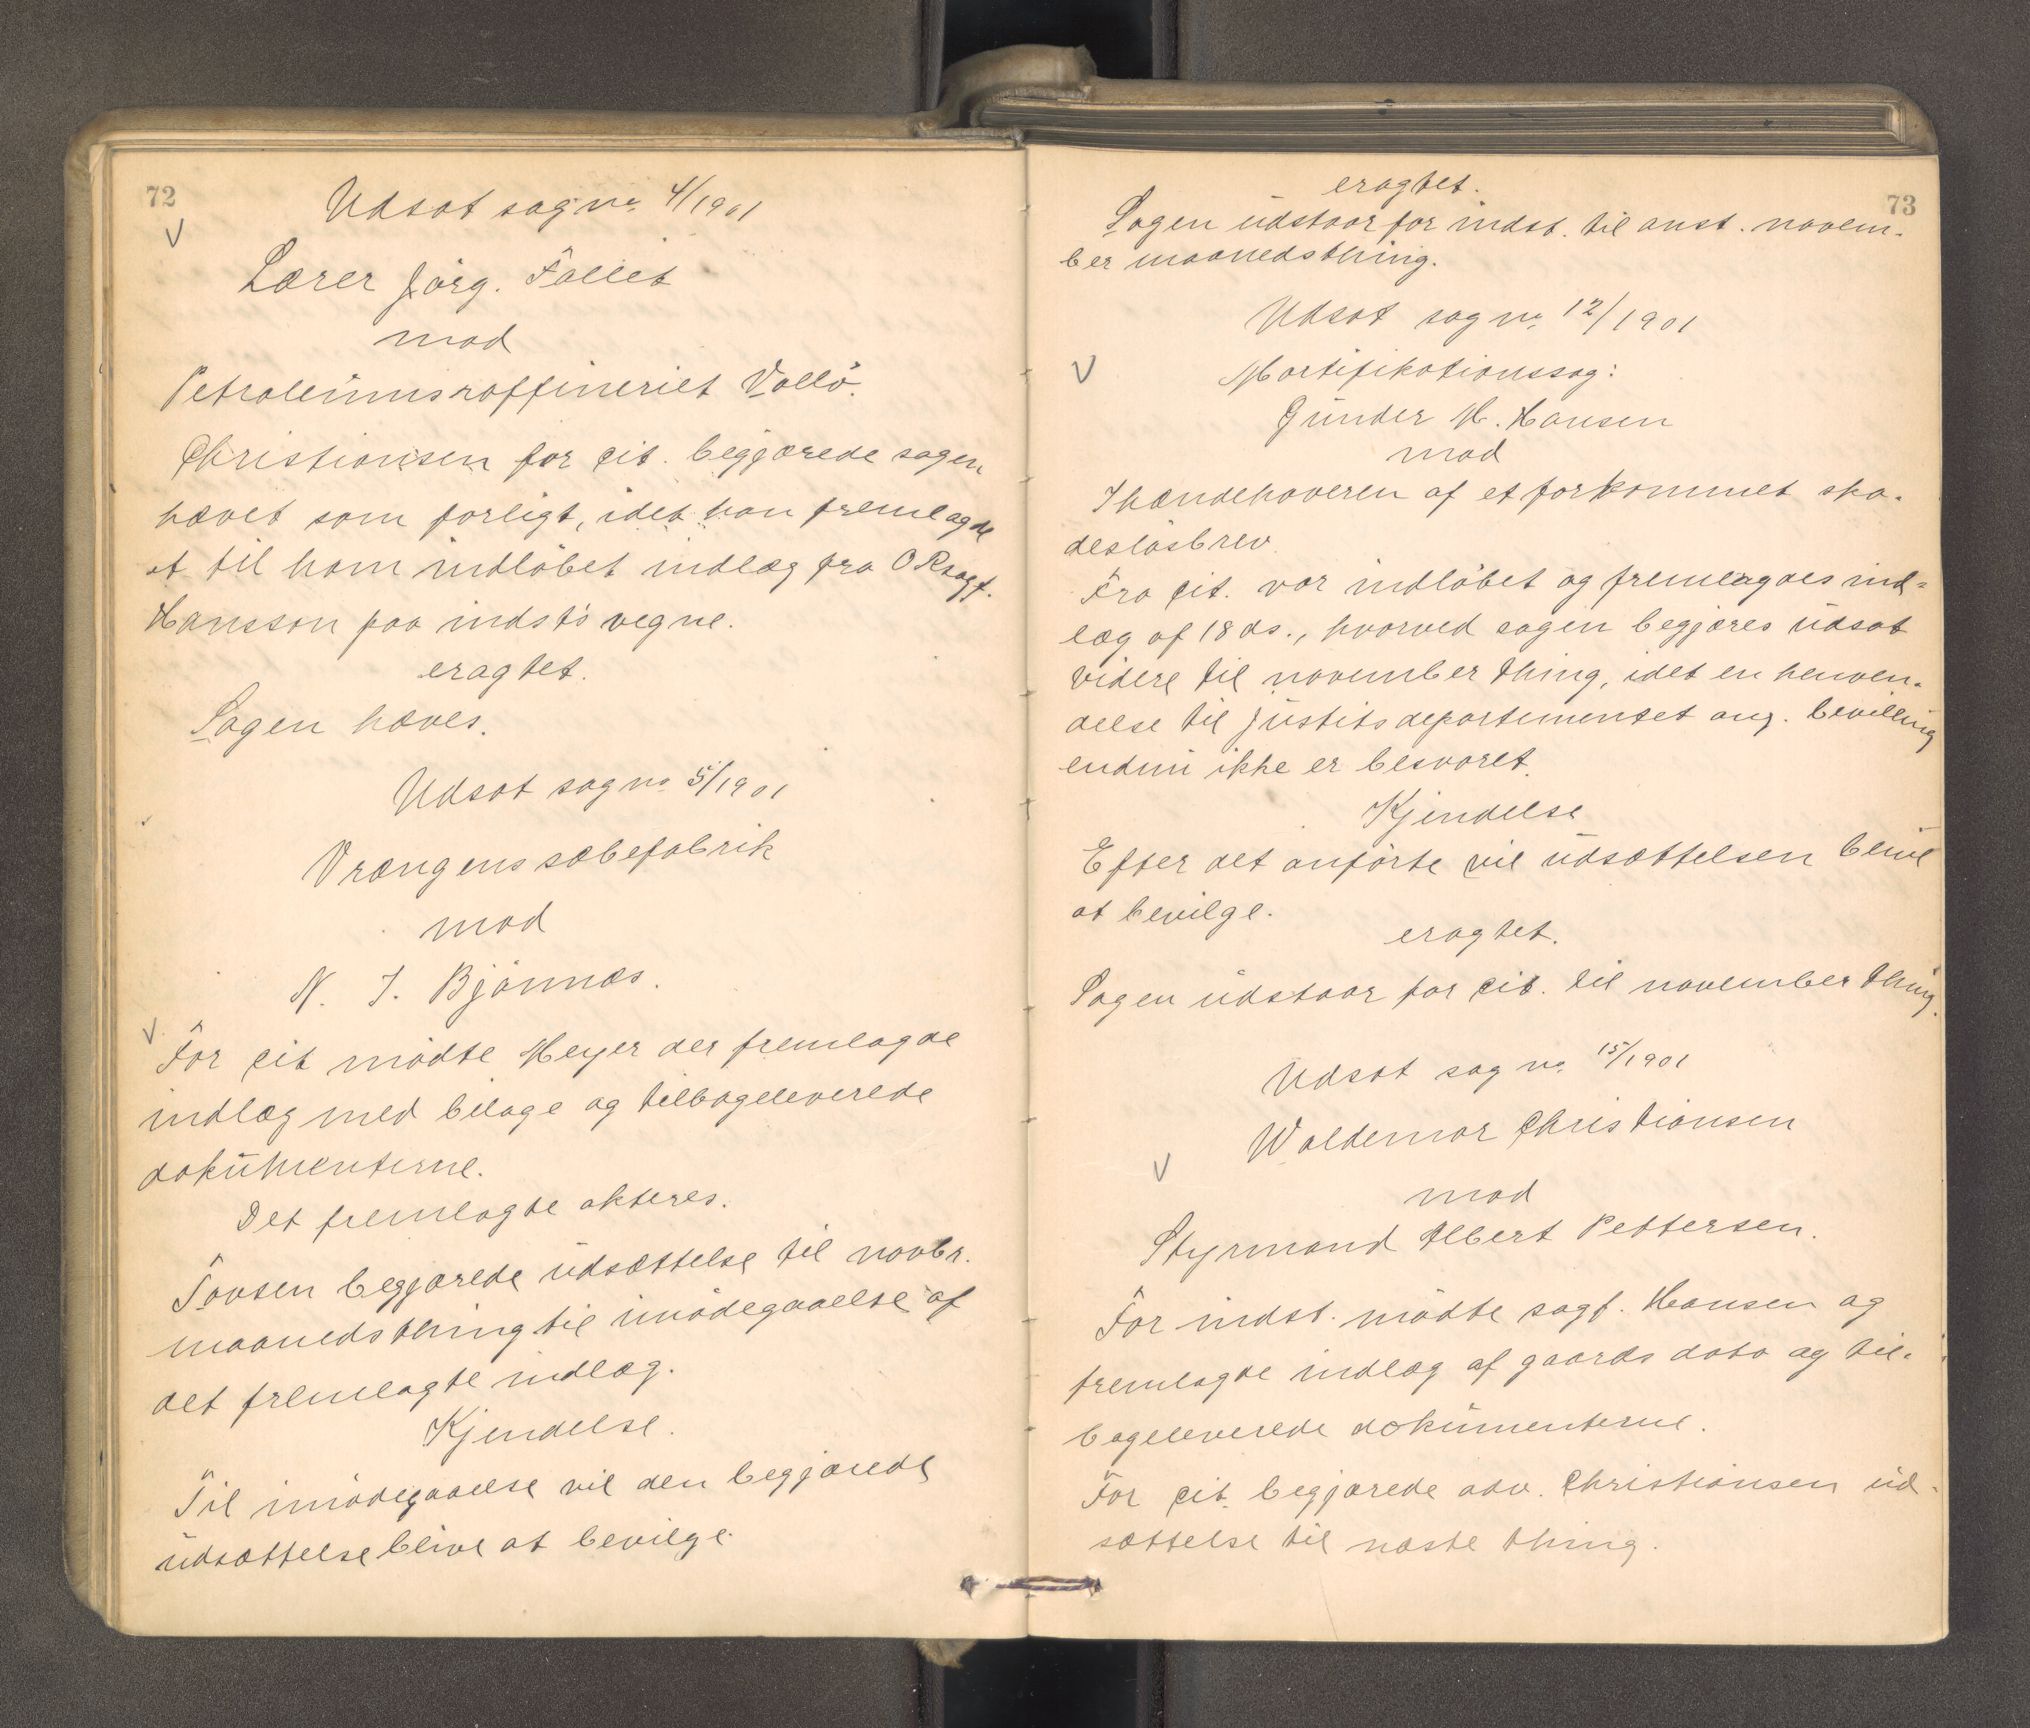 72
Udsat sag no. 4/1901
V
Lærer Jörg. Follet
mod
Petroleumsraffineriet Vallö.
Christiansen for cit. begjærede sagen
hævet som forligt, idet han fremlagde
et til ham indløbet indlæg fra ORsagf.
Hansson paa indst's vegne.
eragtet.
Sagen hæves.
Udsat sag no 5/1901
Vrængens sæbefabrik
mod
N. J. Bjönnæs.
V
For cit mödte Meyer der fremlagde
indlæg med bilage og tilbageleverede
dokumenterne.
Det fremlagte akteres.
Tovsen begjærede udsættelse til novbr.
maanedsthing til imödegaaelse af
det fremlagte indlæg.
Kjendelse.
Til imödegaaelse vil den begjærede
udsættelse blive at bevilge.
73
eragtet.
Sagen udstaar for indst. til anst. novem-
ber maanedsthing.
Udsat sag no. 12/1901
V
Mortifikationssag:
Gunder M. Hansen
mod
Ihændehaveren af et forkommet ska-
deslösbrev.
Fra cit. var indlöbet og fremlagdes ind-
læg af 18 ds., hvorved sagen begjæres udsat
videre til november thing, idet en henven-
delse til justitsdepartementet ang. bevilling
endnu ikke er besvaret.
Kjendelse
Efter det anförte vil udsættelsen blive
at bevilge.
eragtet.
Sagen udstaar for cit. til november thing.
Udsat sag no. 15/1901
Waldemar Christiansen
V
mod
Styrmand Albert Pettersen.
For indst. mödte sagf. Hansen og
fremlagde indlæg af gaards dato og til-
bageleverede dokumenterne.
For cit. begjærede adv. Christiansen ud-
sættelse til næste thing.